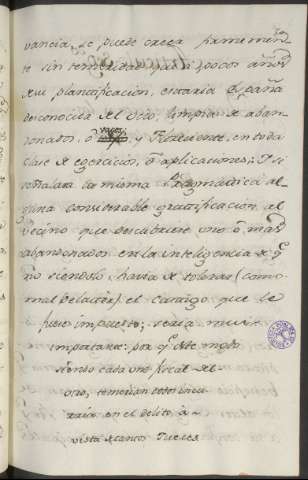 vancia, se puede creer firmemen-
te sin temeridad, que a pocos años
de su plantificacion, estaria España
desconocida del Ocio, limpia de aban-
zonados, ô vagos y Floreciente, en toda
clase de egercicios, ô aplicaciones; Y si
señalara la misma Pragmatica al-
guna considerable gratificacion al
vecino que descubriere uno ô mas
abandonados en la inteligencia de q.^e
no siendolo havia de tolerar (como
mal delator) el castigo que se
le huvo impuesto; seria mui
importante: por q.^e de este modo
siendo cada uno fiscal del
otro, temerian todos incu-
rrir en el delito, à
vista de tantos Jueces